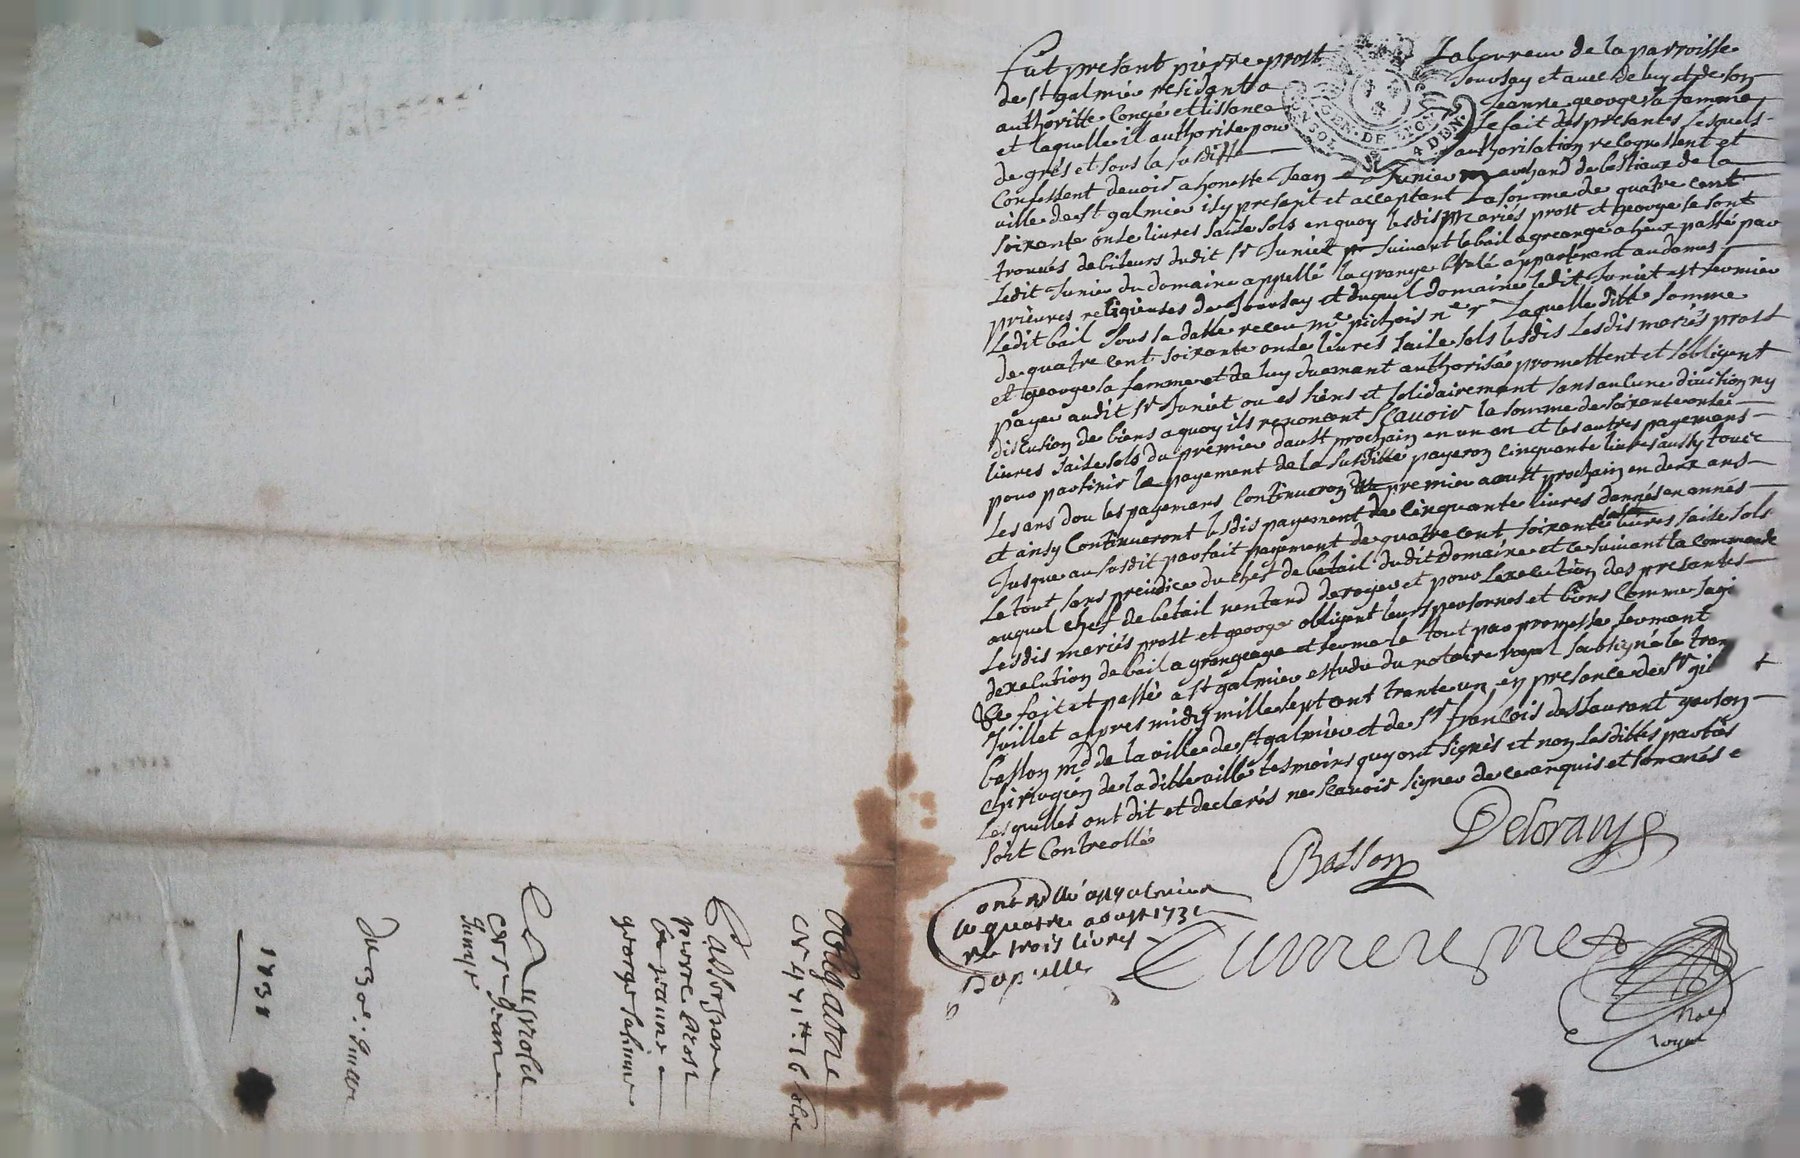 fut present pierre prost Laboureur de la parroisse
de st galmier residant a Jourсey et avec de luy et de son
authoritte Congé et lissance Jeanne george sa femme
et laquelle il authorise pour le fait des presantes lesquels
de grés et sous la susditte authorisation recognoissent et
Confessent devoir a honeste Jean Junier marchand de bestiaux de la
ville de st galmier icy present et acceptant La somme de quatre cent
soixente onze livres saize sols en quoy lesdis mariés prost et george se sont
trouvés debiteurs dudit sr Juniet suivant le bail a grangeage a heux passé par
Ledit Junier du domaine appellé la grange apparterant au dames
prieures religieuses de Joursay et duquel domaine ledit Juniet est fermier
Ledit bail sous sa datte receu me pichois ne r Laquelle ditte somme
de quatre cent soixante onze livres saize sols lesdis Lesdis mariés prost
et george sa femme et de luy duemant authorisée promettent et sobligent
payer audit sr Juniet ou es siens et solidairement sans aulcune division ny
discusion de biens a quoy ils renoncent scavoir la somme de soixente onze
livres saize sols du premier daust prochain en un an et les autres payemans
pour parfinir le payement de la susditte payeron cinquante livres aussy tous
Les ans dou les payemans Continueron premier aoust prochain en deux ans
et ainsy Continueront lesdis payement de cinquante livres dannés en annés
Jusque au susdit parfait payement de quatre cent soixante livres saize sols
Le tout sans prejudice du chef de betail dudit domaine et ce suivant la commande
auquel chef de betail nentand deroger et pour lexecution des presantes
Lesdis mariés prost et george obligent leurs personnes et biens Comme sagi
dexecution de bail a grangeage et ferme le tout par promesse sermant
&c fait et passé a st galmier estude du notaire royal soubsigné le tran
Juillet apres midy mille sept cent trante un en presence de sr
besson md de la ville de st galmier et de sr francois dessaurant garson
chirurgien de la ditte ville tesmoins quy ont signés et non lesdittes parties
Lesquelles ont dit et declarés ne scavoir signer de ce anquis et sommés
soit Controllé
Besson
Controllé a st galmier
le quatre aoust 1731
re trois livres
not
royal
Obligation
de 471tt 16 sols
Passé par
pierre prost
et jeanne
george sa femme
Au proffit
de sr jean
Junier
Du 30e: Juillet
1731